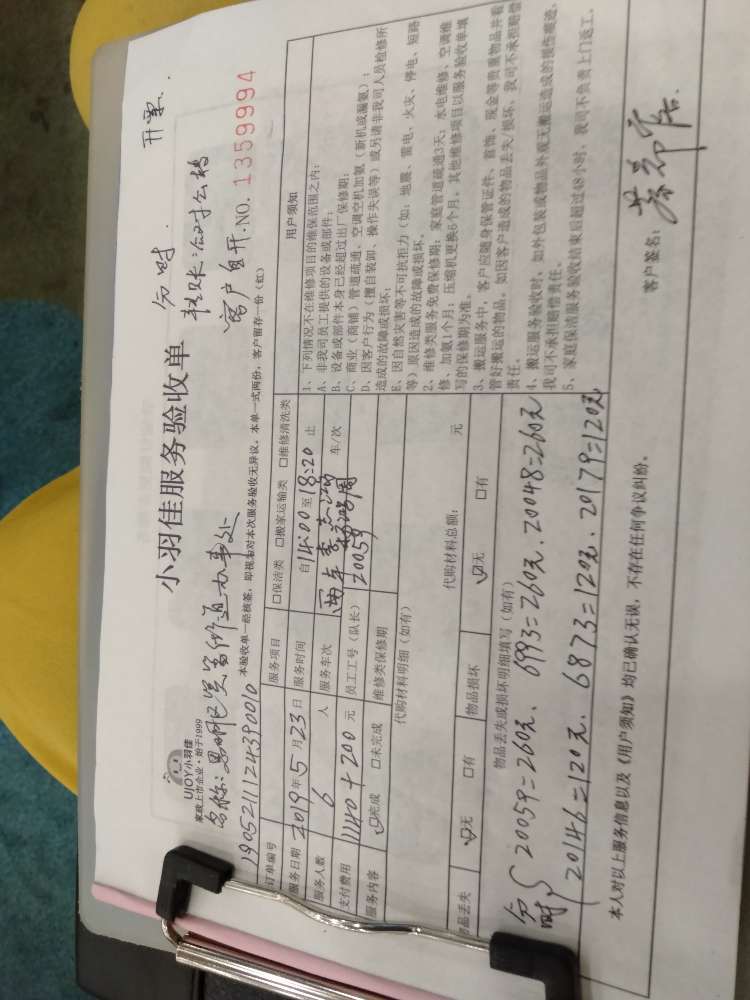 开票.
分时.
转账:公对公转
客户自开.NO. 1359994
小羽佳服务验收单
UJOY小羽佳
家政上市企业·始于1999
名称:思明区筼筜街道办事处
1905211124390010
本验收单一经核签,即视为对本次服务验收无异议。本单一式两份,客户留存一份(红)
订单编号 服务项目 □保洁类 □搬家运输类 □维修清洗类
服务日期 2019年5月23日 服务时间 自14:00至18:20止
服务人数 6 人 服务车次 两车 车/次
支付费用 1140+200 元 员工工号(队长) 20059
服务内容 ☑完成 □未完成 维修类保修期
代购材料明细(如有) 代购材料总额: 元
物品丢失 ☑无 □有 物品损坏 ☑无 □有
物品丢失或损坏明细填写(如有)
分时 20059=260元、6993=260元、20048=260元
20146=120元、6873=120元、20179=120元
用户须知
1、下列情况不在维修项目的维保范围之内:
A、非我司员工提供的设备或部件;
B、设备或部件本身已经超过出厂保修期;
C、商业(商铺)管道疏通、空调空机加氨(新机或漏氨);
D、因客户行为(擅自装卸、操作失误等)或另请非我司人员检修所
造成的故障或损坏;
E、因自然灾害等不可抗拒力(如:地震、雷电、火灾、停电、短路
等)原因造成的故障或损坏。
2、维修类服务免费保修期:家庭管道疏通3天;水电维修、空调维
修、加氨1个月;压缩机更换6个月,其他维修项目以服务验收单填
写的保修期为准。
3、搬运服务中,客户应随身保管证件、首饰、现金等贵重物品并看
管好搬运的物品,如因客户造成的物品丢失/损坏,我司不承担赔偿
责任。
4、搬运服务验收时,如外包装或物品外观无搬运造成的损伤痕迹,
我司不承担赔偿责任。
5、家庭保清服务验收结束后超过48小时,我司不负责上门返工。
本人对以上服务信息以及《用户须知》均已确认无误,不存在任何争议纠纷。
客户签名: